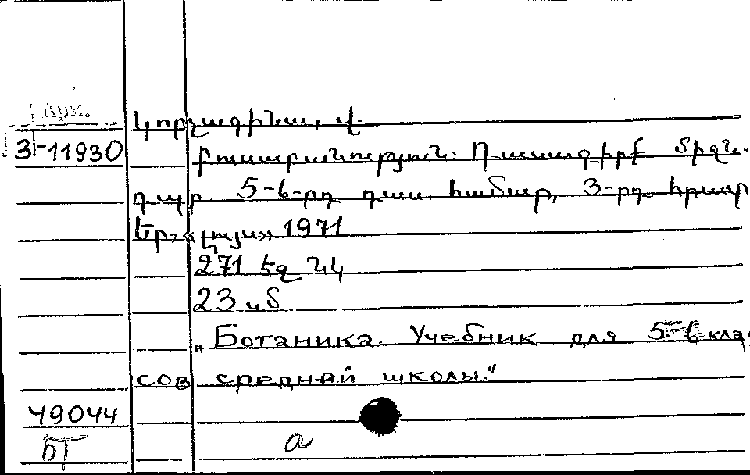 Կորչագինա, Վ.
3-11930
Բուսաբանություն. Դասագիրք միջն.
դպր. 5-6-րդ դաս. համար, 3-րդ հրատ
Եր., «Լույս» 1971
271 էջ նկ
23 սմ
„Ботаника. Учебник для 5-6 клас
сов средней школы."
49044
БТ a